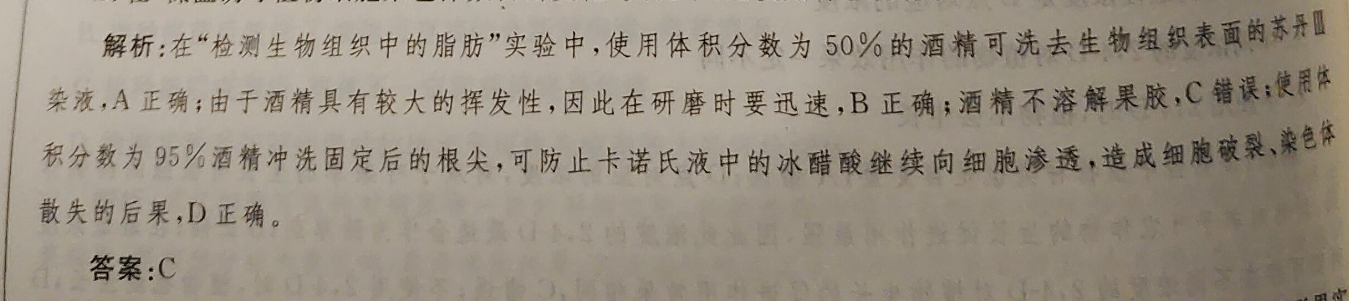 解析:在“检测生物组织中的脂肪”实验中,使用体积分数为 50%的酒精可洗去生物组织表面的苏丹Ⅲ
染液,A 正确;由于酒精具有较大的挥发性,因此在研磨时要迅速,B 正确;酒精不溶解果胶,C 错误;使用体
积分数为 95%酒精冲洗固定后的根尖,可防止卡诺氏液中的冰醋酸继续向细胞渗透,造成细胞破裂、染色体
散失的后果,D 正确。
答案:C